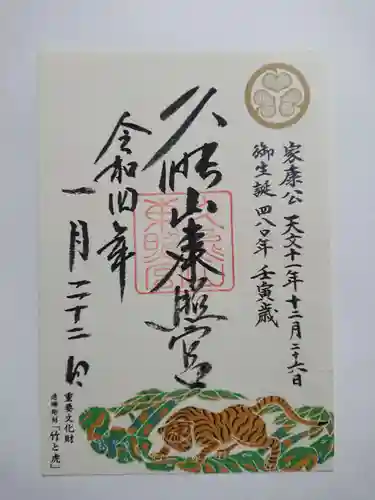 家康公 天文十一年十二月二十六日
御生誕 四八〇年 壬寅歳
久能山東照宮
令和四年
一月二十二日
重要文化財
透塀彫刻「竹と虎」